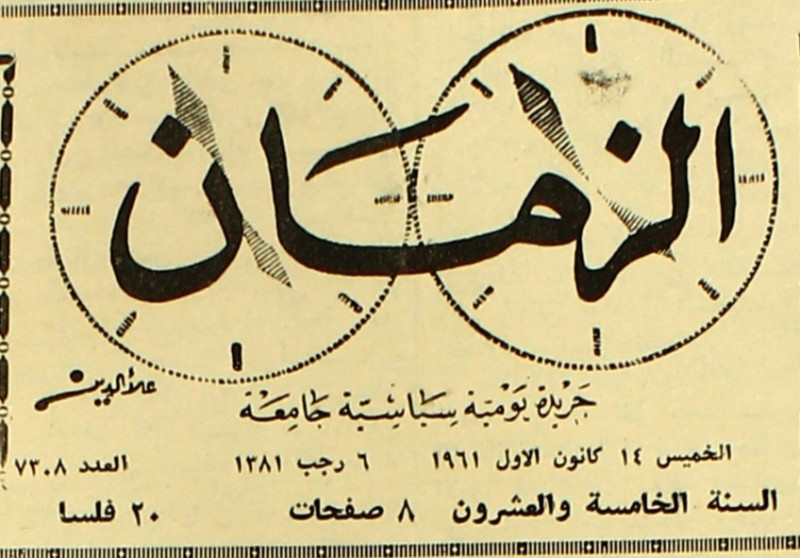 الزمان
علاءالدين
جَرِيْدَة يَوْمِيَة سِيَاسِيَّة جَامِعَة
الخميس ١٤ كانون الاول ١٩٦١ ٦ رجب ١٣٨١ العدد ٧٣٠٨
السنة الخامسة والعشرون ٨ صفحات ٢٠ فلسا